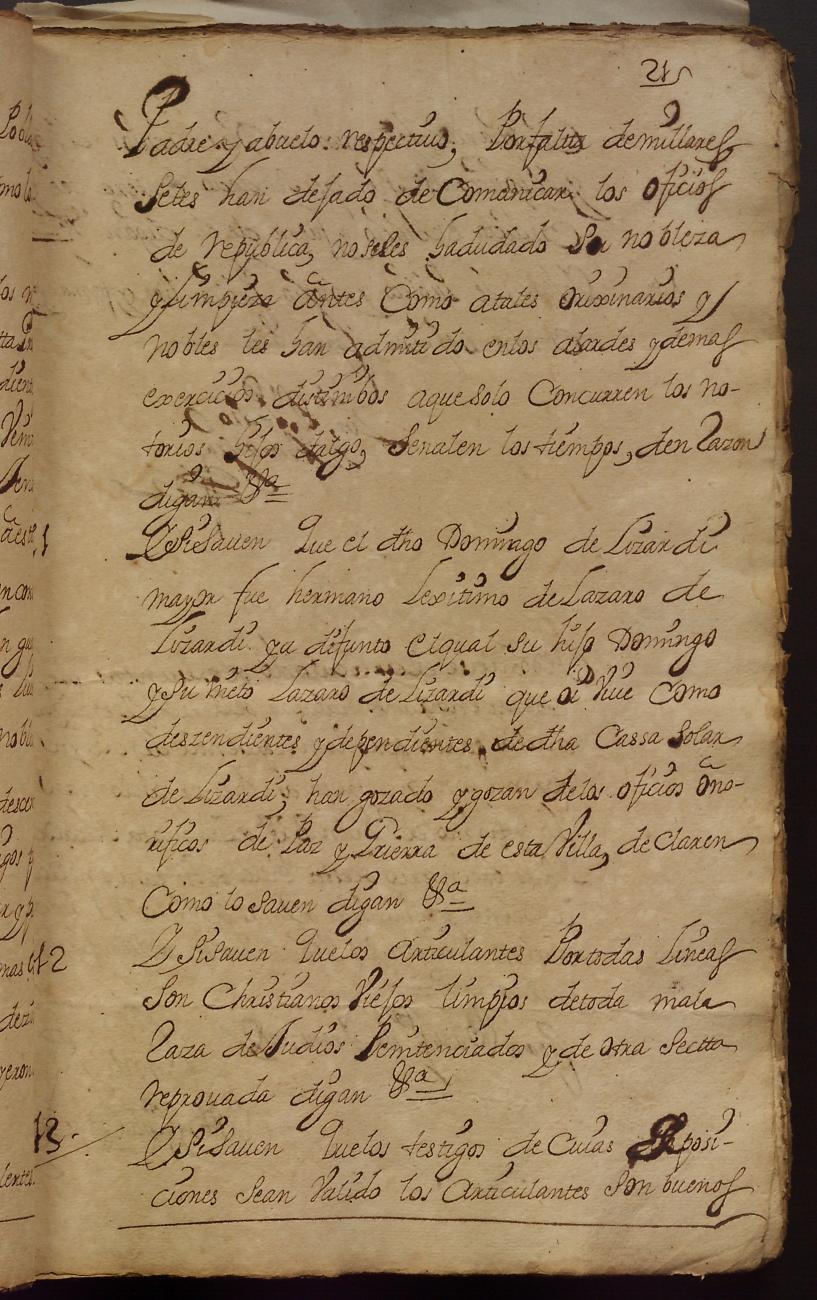 21
Padre y abuelo respectiuo, Por falta de millares
Setes han dejado de Comunicar los oficios
de republica, no seles ha dudado Su nobleza
y limpieza antes Como atales orixinarios y
nobles les han admitido en los alardes y demas
exercicios distintibos aque solo Concurren los no-
torios hijos dalgo, Señalen los tiempos, den Razon
digan &a
Y Si Sauen Que el dho Domingo de Lizardi
1
mayor fue hermano Lexitimo de Lazaro de
Lizardi ya difunto el qual su hijo Domingo
y Su nieto Lazaro de Lizardi que oi Viue Como
deszendientes y dependientes de dha Cassa Solar
de Lizardi, han gozado y gozan de los oficios ono-
rificos de Paz y Grierra de esta Villa, de Claren
Como lo Sauen digan &a
Y Si Sauen Que los Articulantes Por todas lineas
2
Son Christianos Viejos limpios de toda mala
Raza de Judios Penitenciados y de otra Secta
reprouada digan &a
13
Y Si Sauen Que los testigos de Cuias Deposi-
ciones Sean Valido los Articulantes Son buenos